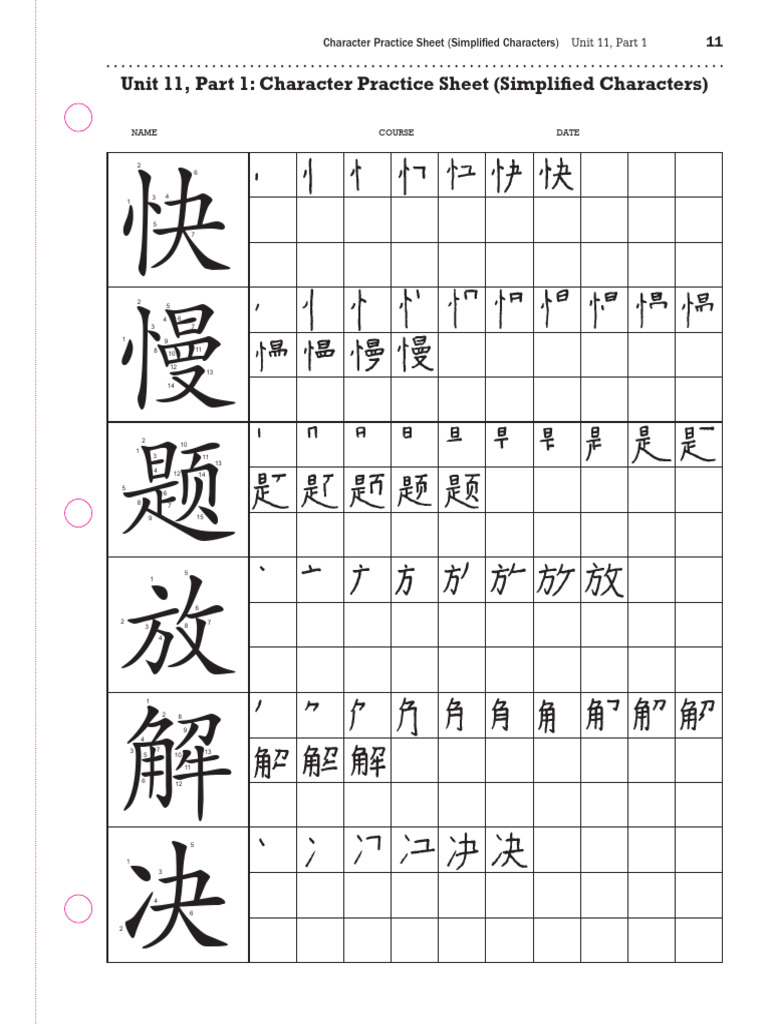 Character Practice Sheet (Simplified Characters) Unit 11, Part 1 11
Unit 11, Part 1: Character Practice Sheet (Simplified Characters)
NAME COURSE DATE
快
慢
题
放
解
决